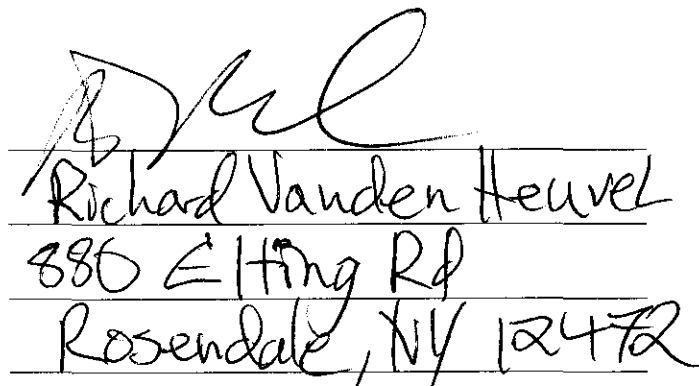 Richard Vanden Heuvel
880 Elting Rd
Rosendale, NY 12472